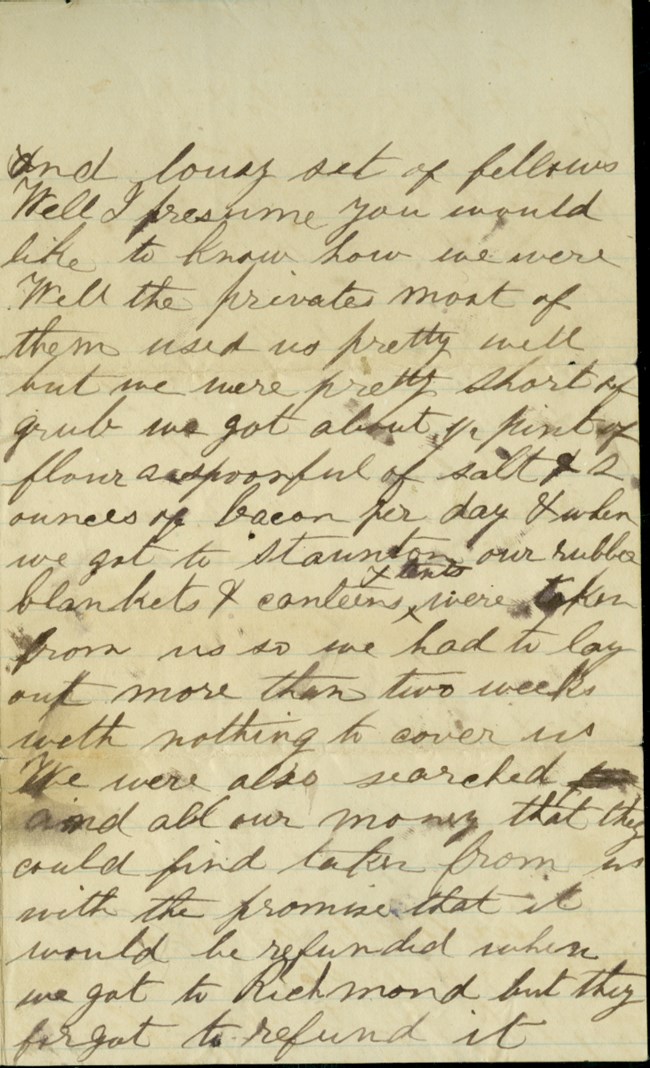 and lousy set of fellows
Well I presume you would
like to know how we were
Well the privates most of
them used us pretty well
but we were pretty short of
grub we got about ½ pint of
flour a spoonful of salt & 2
ounces of bacon per day & when
we got to Staunton our rubber
& tents
blankets & canteens were taken
from us so we had to lay
out more than two weeks
with nothing to cover us
We were also searched
and all our money that they
could find taken from us
with the promise that it
would be refunded when
we got to Richmond but they
forgot to refund it